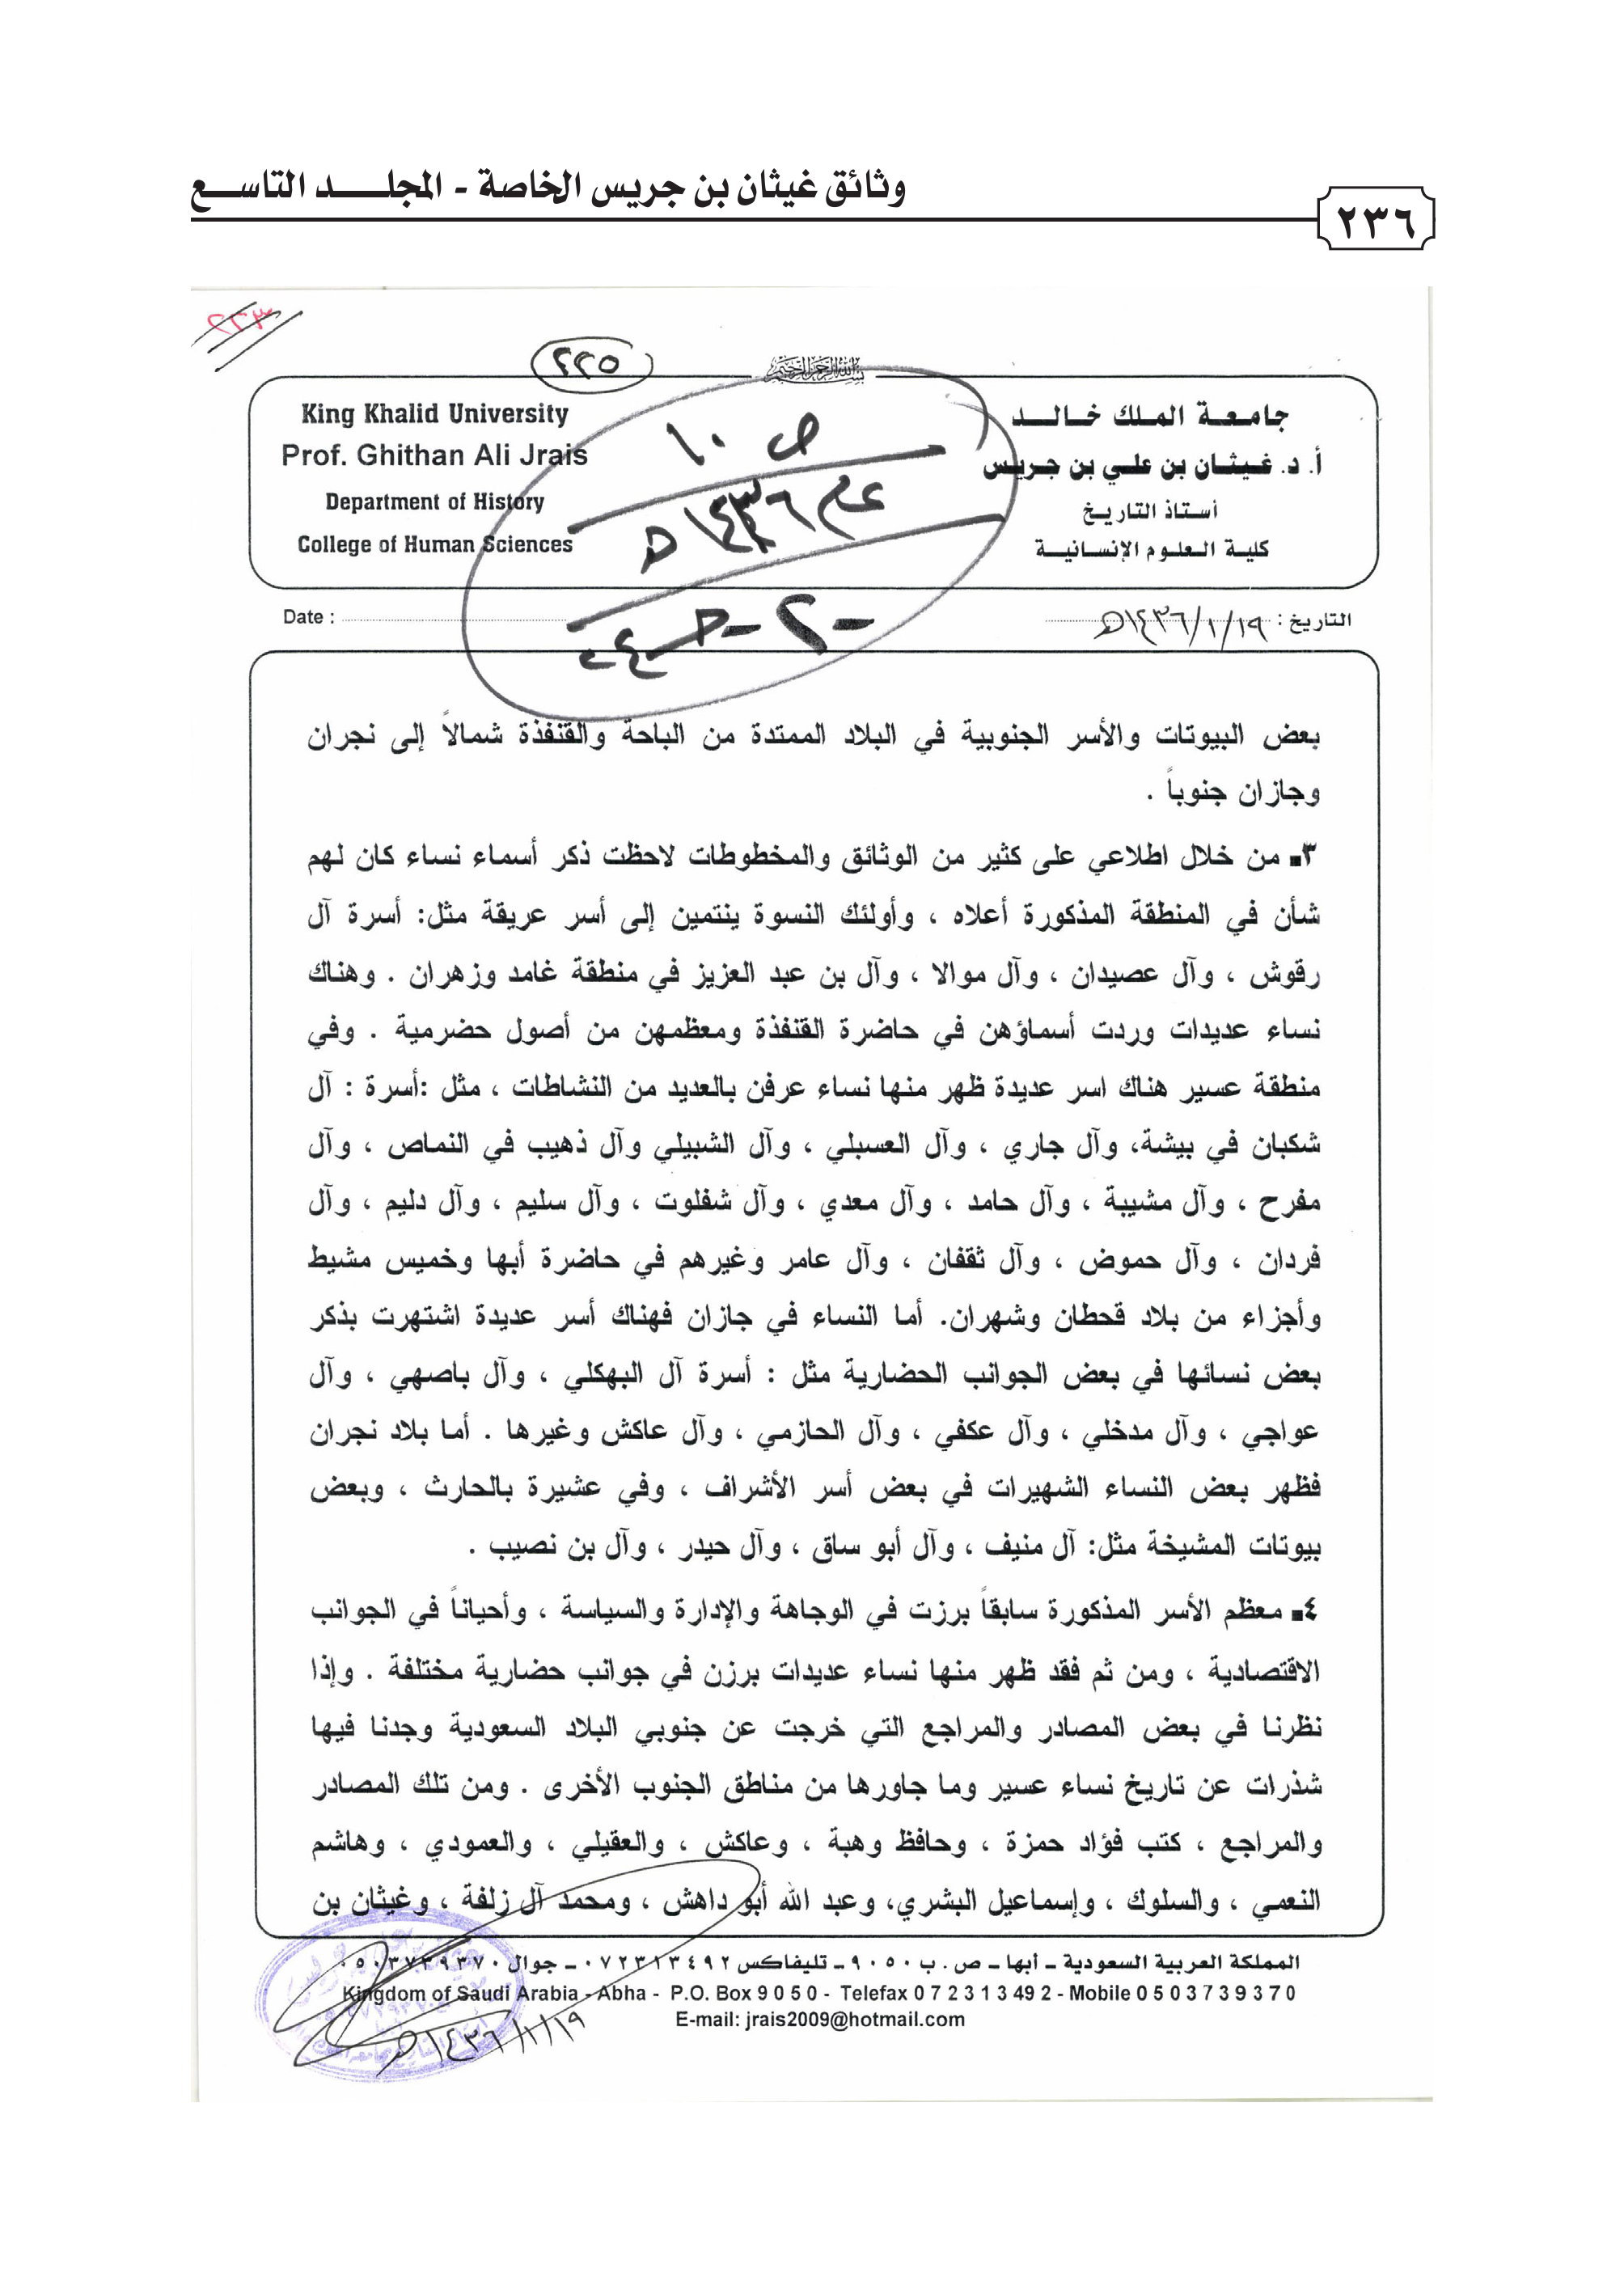 وثائق غيثان بن جريس الخاصة - المجلـــــد التاســـع
٢٣٦
٢٢٣
٢٢٥
بسم الله الرحمن الرحيم
جامعـة الملك خـالـد
أ. د. غيـثـان بن علـي بن جـريـس
أستـاذ التاريـخ
كليـة العلـوم الإنسـانيـة
King Khalid University
Prof. Ghithan Ali Jrais
Department of History
College of Human Sciences
ص ١٠
عام ١٤٣٦هـ
-٢-
التاريخ : ١٤٣٦/١/١٩هـ
Date :
بعض البيوتات والأسر الجنوبية في البلاد الممتدة من الباحة والقنفذة شمالاً إلى نجران
وجازان جنوباً .
٣- من خلال اطلاعي على كثير من الوثائق والمخطوطات لاحظت ذكر أسماء نساء كان لهم
شأن في المنطقة المذكورة أعلاه ، وأولئك النسوة ينتمين إلى أسر عريقة مثل: أسرة آل
رقوش ، وآل عصيدان ، وآل موالا ، وآل بن عبد العزيز في منطقة غامد وزهران . وهناك
نساء عديدات وردت أسماؤهن في حاضرة القنفذة ومعظمهن من أصول حضرمية . وفي
منطقة عسير هناك اسر عديدة ظهر منها نساء عرفن بالعديد من النشاطات ، مثل :أسرة : آل
شكبان في بيشة، وآل جاري ، وآل العسبلي ، وآل الشبيلي وآل ذهيب في النماص ، وآل
مفرح ، وآل مشيبة ، وآل حامد ، وآل معدي ، وآل شفلوت ، وآل سليم ، وآل دليم ، وآل
فردان ، وآل حموض ، وآل ثقفان ، وآل عامر وغيرهم في حاضرة أبها وخميس مشيط
وأجزاء من بلاد قحطان وشهران. أما النساء في جازان فهناك أسر عديدة اشتهرت بذكر
بعض نسائها في بعض الجوانب الحضارية مثل : أسرة آل البهكلي ، وآل باصهي ، وآل
عواجي ، وآل مدخلي ، وآل عكفي ، وآل الحازمي ، وآل عاكش وغيرها . أما بلاد نجران
فظهر بعض النساء الشهيرات في بعض أسر الأشراف ، وفي عشيرة بالحارث ، وبعض
بيوتات المشيخة مثل: آل منيف ، وآل أبو ساق ، وآل حيدر ، وآل بن نصيب .
٤- معظم الأسر المذكورة سابقاً برزت في الوجاهة والإدارة والسياسة ، وأحياناً في الجوانب
الاقتصادية ، ومن ثم فقد ظهر منها نساء عديدات برزن في جوانب حضارية مختلفة . وإذا
نظرنا في بعض المصادر والمراجع التي خرجت عن جنوبي البلاد السعودية وجدنا فيها
شذرات عن تاريخ نساء عسير وما جاورها من مناطق الجنوب الأخرى . ومن تلك المصادر
والمراجع ، كتب فؤاد حمزة ، وحافظ وهبة ، وعاكش ، والعقيلي ، والعمودي ، وهاشم
النعمي ، والسلوك ، وإسماعيل البشري، وعبد الله أبو داهش ، ومحمد آل زلفة ، وغيثان بن
المملكة العربية السعودية ـ أبها ـ ص . ب ٩٠٥٠ ـ تليفاكس ٠٧٢٣١٣٤٩٢ ـ جوال ٠٥٠٣٧٣٩٣٧٠
Kingdom of Saudi Arabia - Abha - P.O. Box 9 0 5 0 - Telefax 0 7 2 3 1 3 49 2 - Mobile 0 5 0 3 7 3 9 3 7 0
E-mail: jrais2009@hotmail.com
١٤٣٦/١/١٩هـ